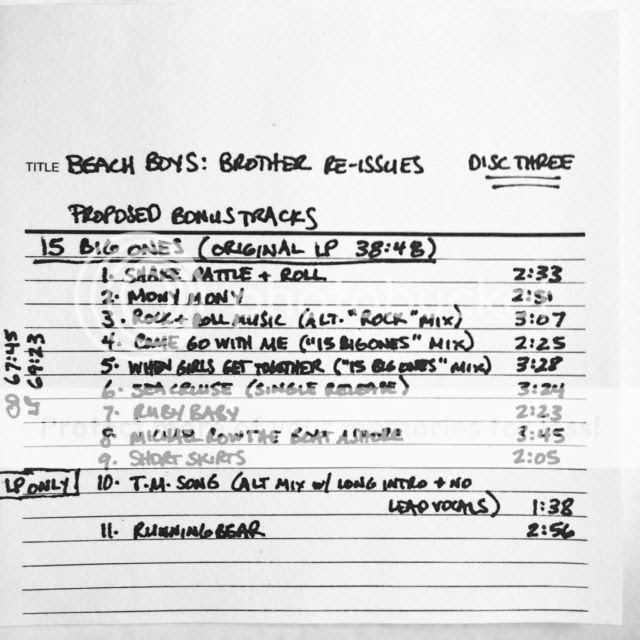 TITLE BEACH BOYS: BROTHER RE-ISSUES DISC THREE
PROPOSED BONUS TRACKS
15 BIG ONES (ORIGINAL LP 38:48)
1. SHAKE RATTLE + ROLL 2:33
2. MONY MONY 2:51
3. ROCK + ROLL MUSIC (ALT. "ROCK" MIX) 3:07
4. COME GO WITH ME ("15 BIG ONES" MIX) 2:25
5. WHEN GIRLS GET TOGETHER ("15 BIG ONES" MIX) 3:28
6. SEA CRUISE (SINGLE RELEASE) 3:24
7. RUBY BABY 2:23
8. MICHAEL ROW THE BOAT ASHORE 3:45
9. SHORT SKIRTS 2:05
LP ONLY 10. T.M. SONG (ALT MIX W/ LONG INTRO + NO
LEAD VOCALS) 1:38
11. RUNNING BEAR 2:56
CD 67:45
LP 69:23
photobucket
Protect more of your memories for less!